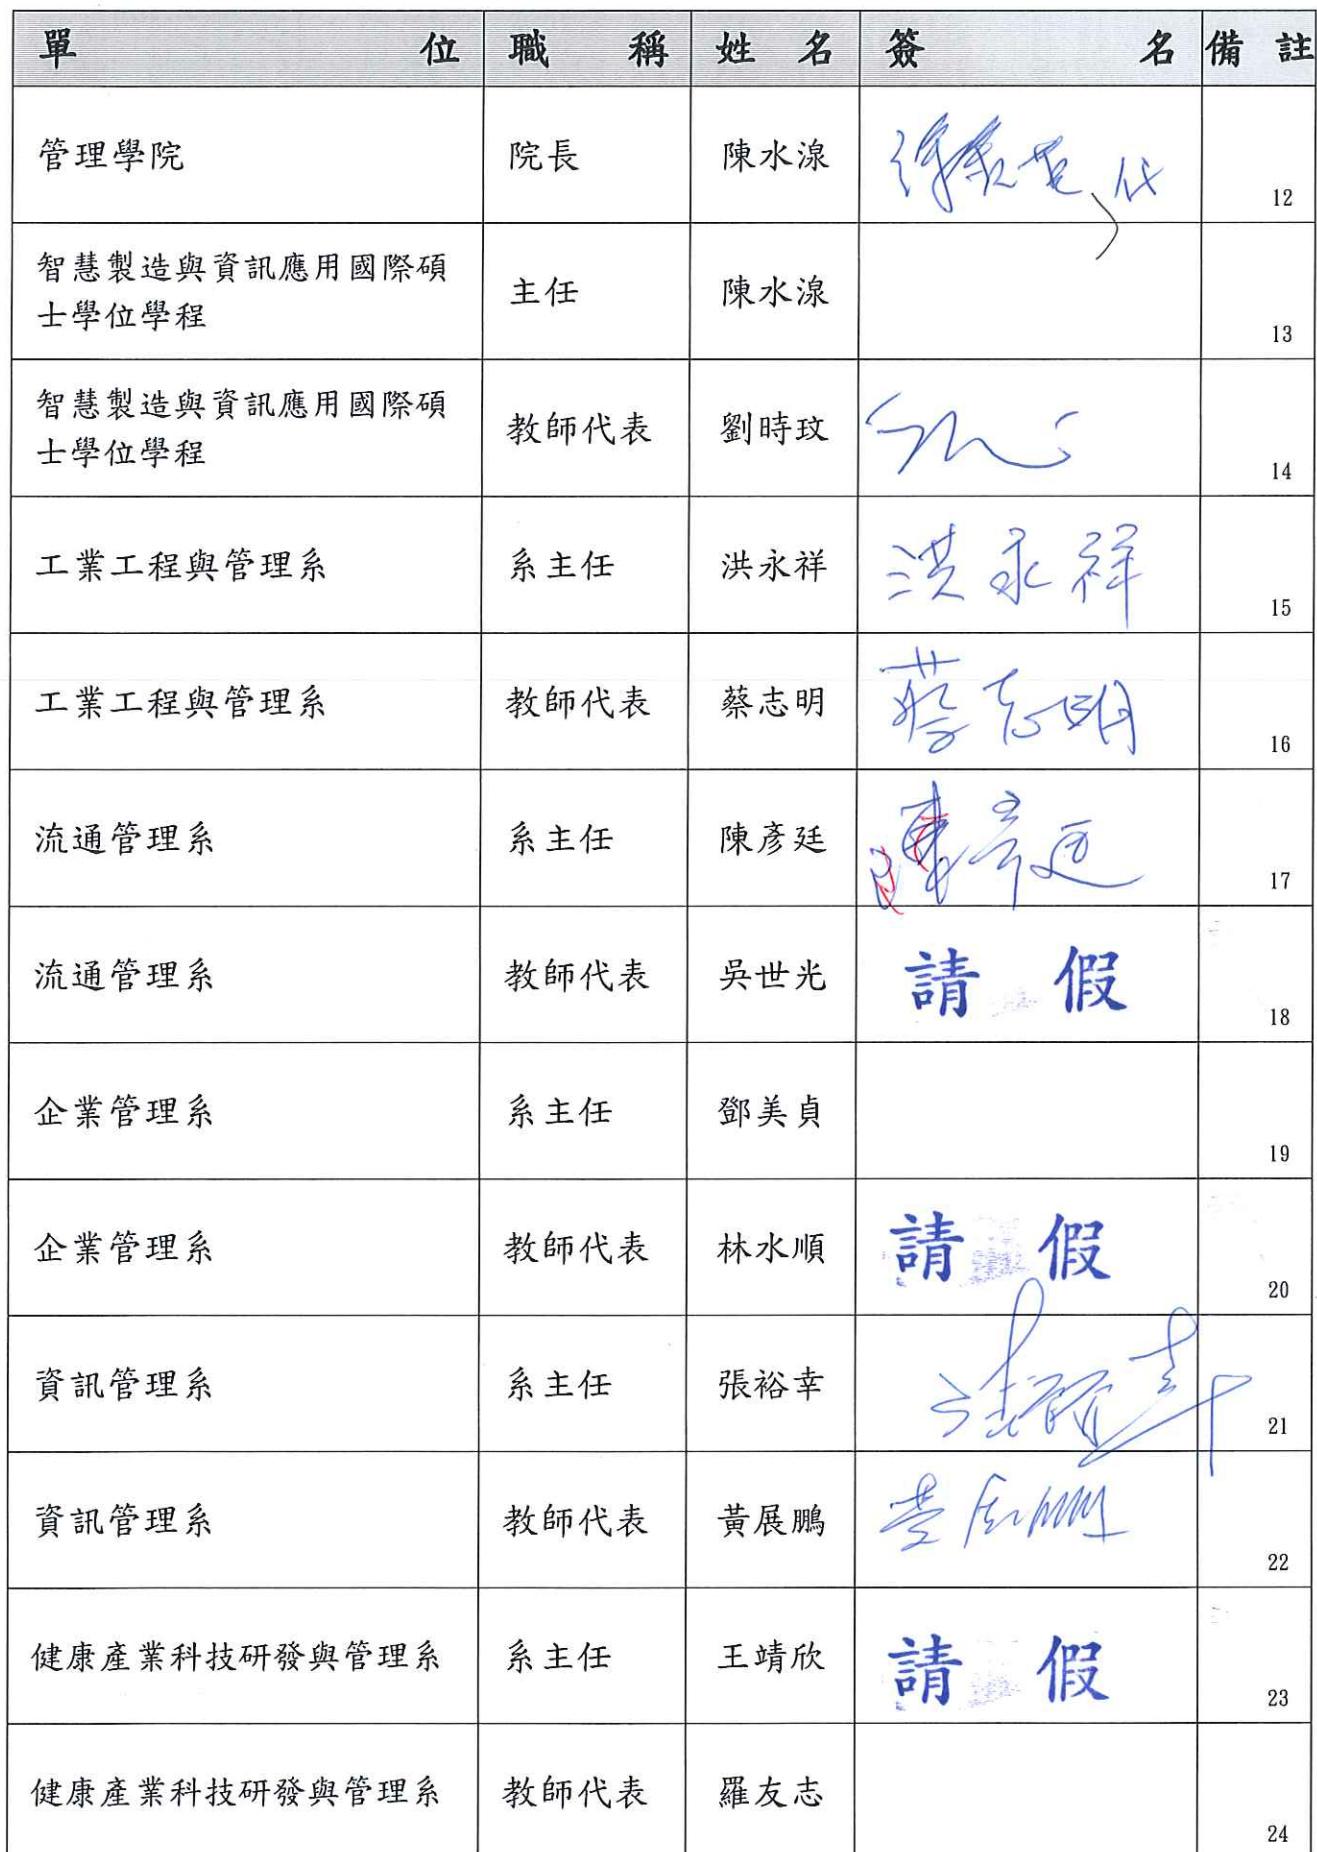 單位 職稱 姓名 簽名 備註
管理學院 院長 陳水湶 代 12
智慧製造與資訊應用國際碩
士學位學程 主任 陳水湶 13
智慧製造與資訊應用國際碩
士學位學程 教師代表 劉時玟 14
工業工程與管理系 系主任 洪永祥 洪永祥 15
工業工程與管理系 教師代表 蔡志明 蔡志明 16
流通管理系 系主任 陳彥廷 陳彥廷 17
流通管理系 教師代表 吳世光 請假 18
企業管理系 系主任 鄧美貞 19
企業管理系 教師代表 林水順 請假 20
資訊管理系 系主任 張裕幸 張裕幸 21
資訊管理系 教師代表 黃展鵬 黃展鵬 22
健康產業科技研發與管理系 系主任 王靖欣 請假 23
健康產業科技研發與管理系 教師代表 羅友志 24